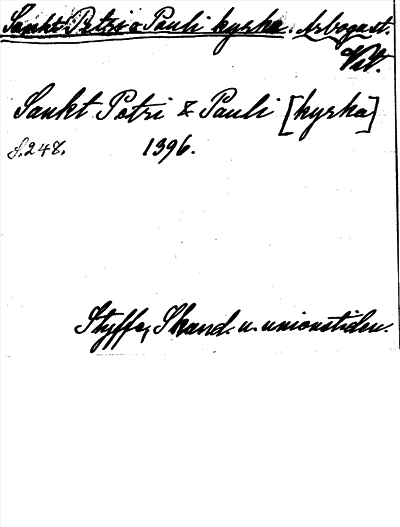 Sankt Petri o Pauli kyrka. Arboga st.
Vsl.
Sankt Petri & Pauli [kyrka]
s. 248. 1396.
Styffe, Skand. u. unionstiden.